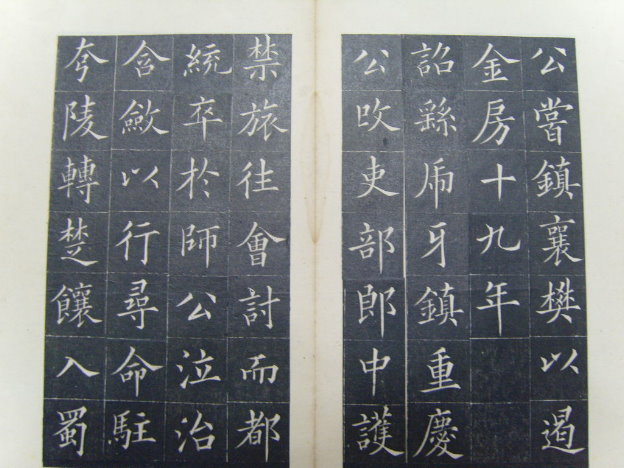 公嘗鎮襄樊以遏
金房十九年
詔繇虎牙鎮重慶
公改吏部郎中護
禁旅往會討而都
統卒於師公泣治
含斂以行尋命駐
夸陵轉楚饟入蜀